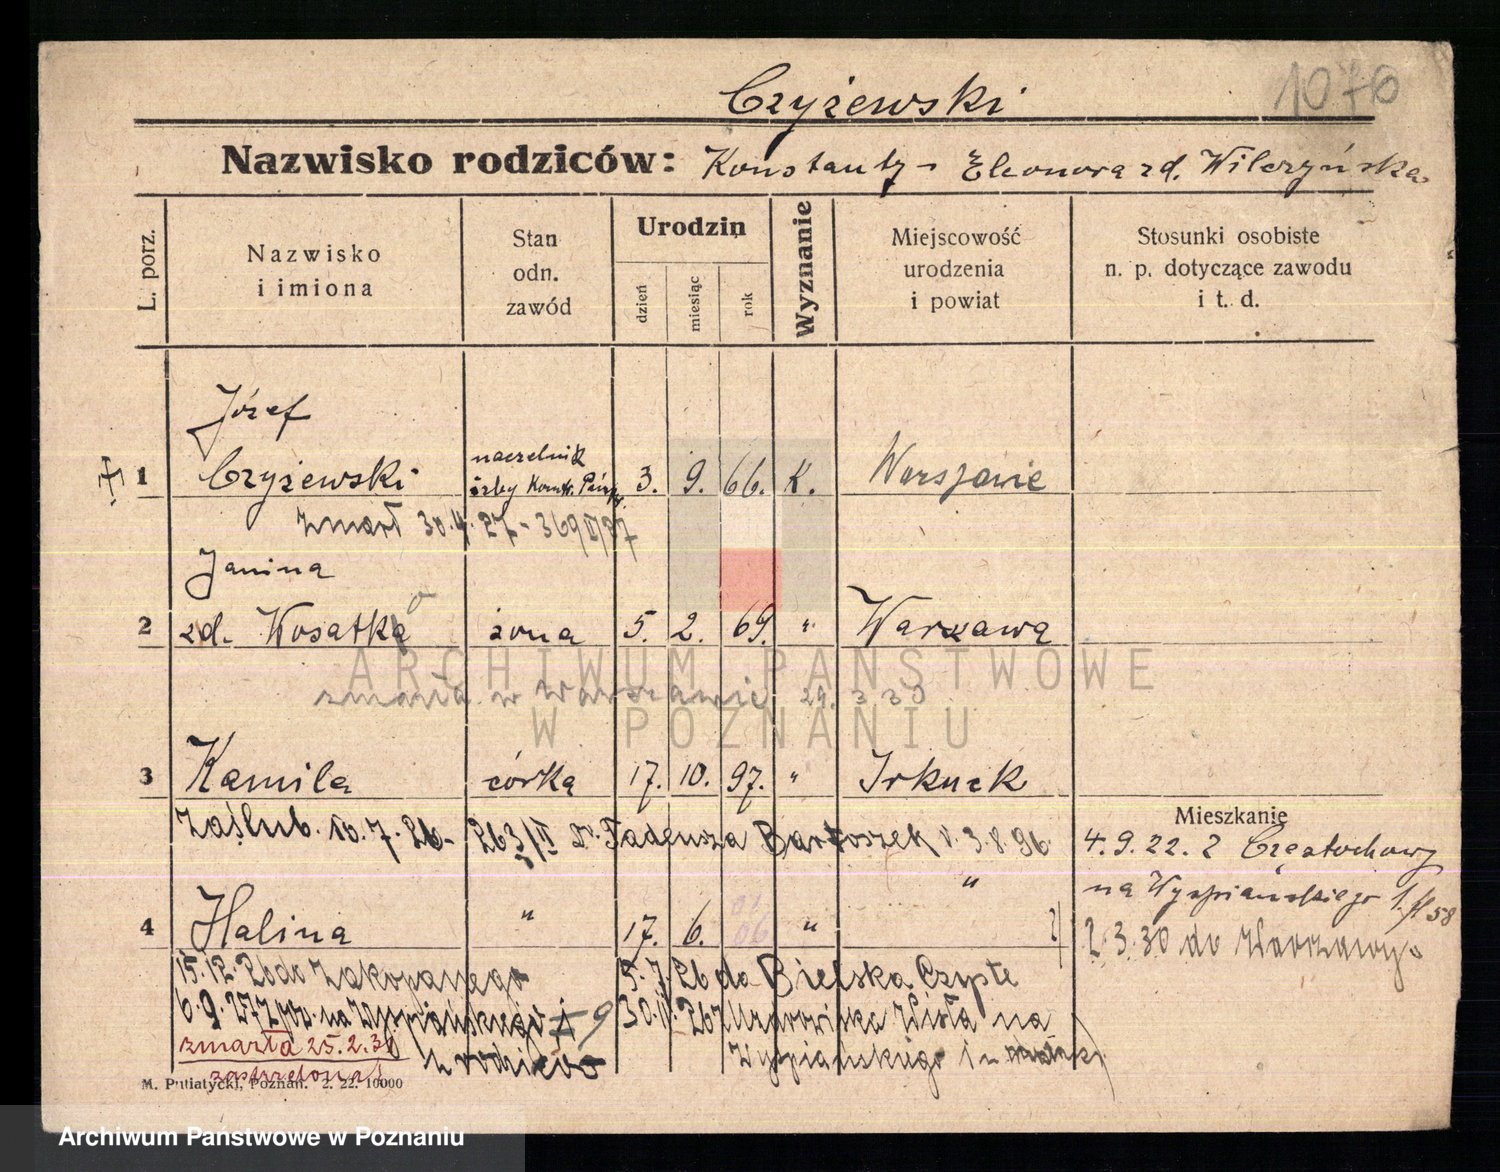 Czyżewski
1076
Nazwisko rodziców: Konstanty - Eleonora zd. Wilczyńska
L. porz.
Nazwisko
i imiona
Stan
odn.
zawód
Urodzin
dzień
miesiąc
rok
Wyznanie
Miejscowość
urodzenia
i powiat
Stosunki osobiste
n. p. dotyczące zawodu
i t. d.
Józef
1 Czyżewski naczelnik 3. 9. 66. K. Warszawie
izby Kontr. Państw.
zmarł 30.4.27 - 369/II/27
Janina
2 zd. Kosatko żona 5. 2. 69. " Warszawa
zmarła w Warszawie 29. 3 30
3 Kamila córka 17. 10. 97. " Irkuck
zaślub. 10.7.26 - 263/II Dr. Tadeusza Bartoszek 3.8.96.
Mieszkanie
4.9.22. z Częstochowy
na Wyspiańskiego 1. 58
2.3.30 do Warszawy
4 Halina " 17. 6. 06 " "
15.12.26 do Zakopanego 5.7.26 do Bielska
6.9.27 na Wyspiańskiego 9 30.11.26 z Wisła na
z rodziców Wyspiańskiego 1
zmarła 25.2.30
zastrzelona
M. Putiatycki, Poznań. 2. 22. 10000
ARCHIWUM PAŃSTWOWE
W POZNANIU
Archiwum Państwowe w Poznaniu